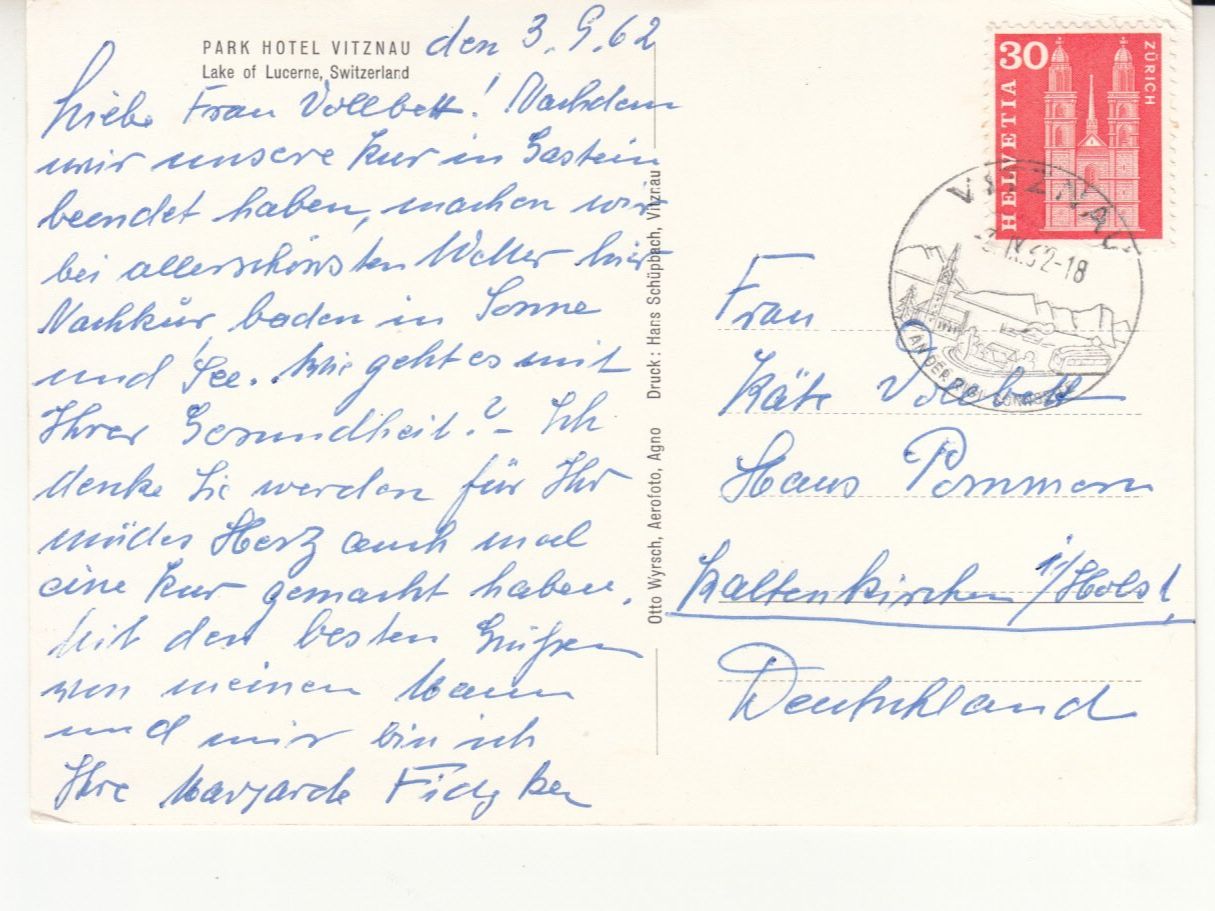 PARK HOTEL VITZNAU
Lake of Lucerne, Switzerland
den 3.9.62
Liebe Frau Vollbett! Nachdem
wir unsere Kur in Gastein
beendet haben, machen wir
bei allerschönsten Wetter hier
Nachkur, baden in Sonne
und See. Wie geht es mit
Ihrer Gesundheit? – Ich
denke Sie werden für Ihr
müdes Herz auch mal
eine Kur gemacht haben.
Mit den besten Grüßen
von meinen Mann
und mir bin ich
Ihre
Otto Wyrsch, Aerofoto, Agno Druck: Hans Schüpbach, Vitznau
30
HELVETIA
ZÜRICH
VITZNAU
IX.62-18
AN DER RIGI
Frau
Käte Vollbett
Haus Pommern
Kaltenkirchen i/Holst.
Deutschland